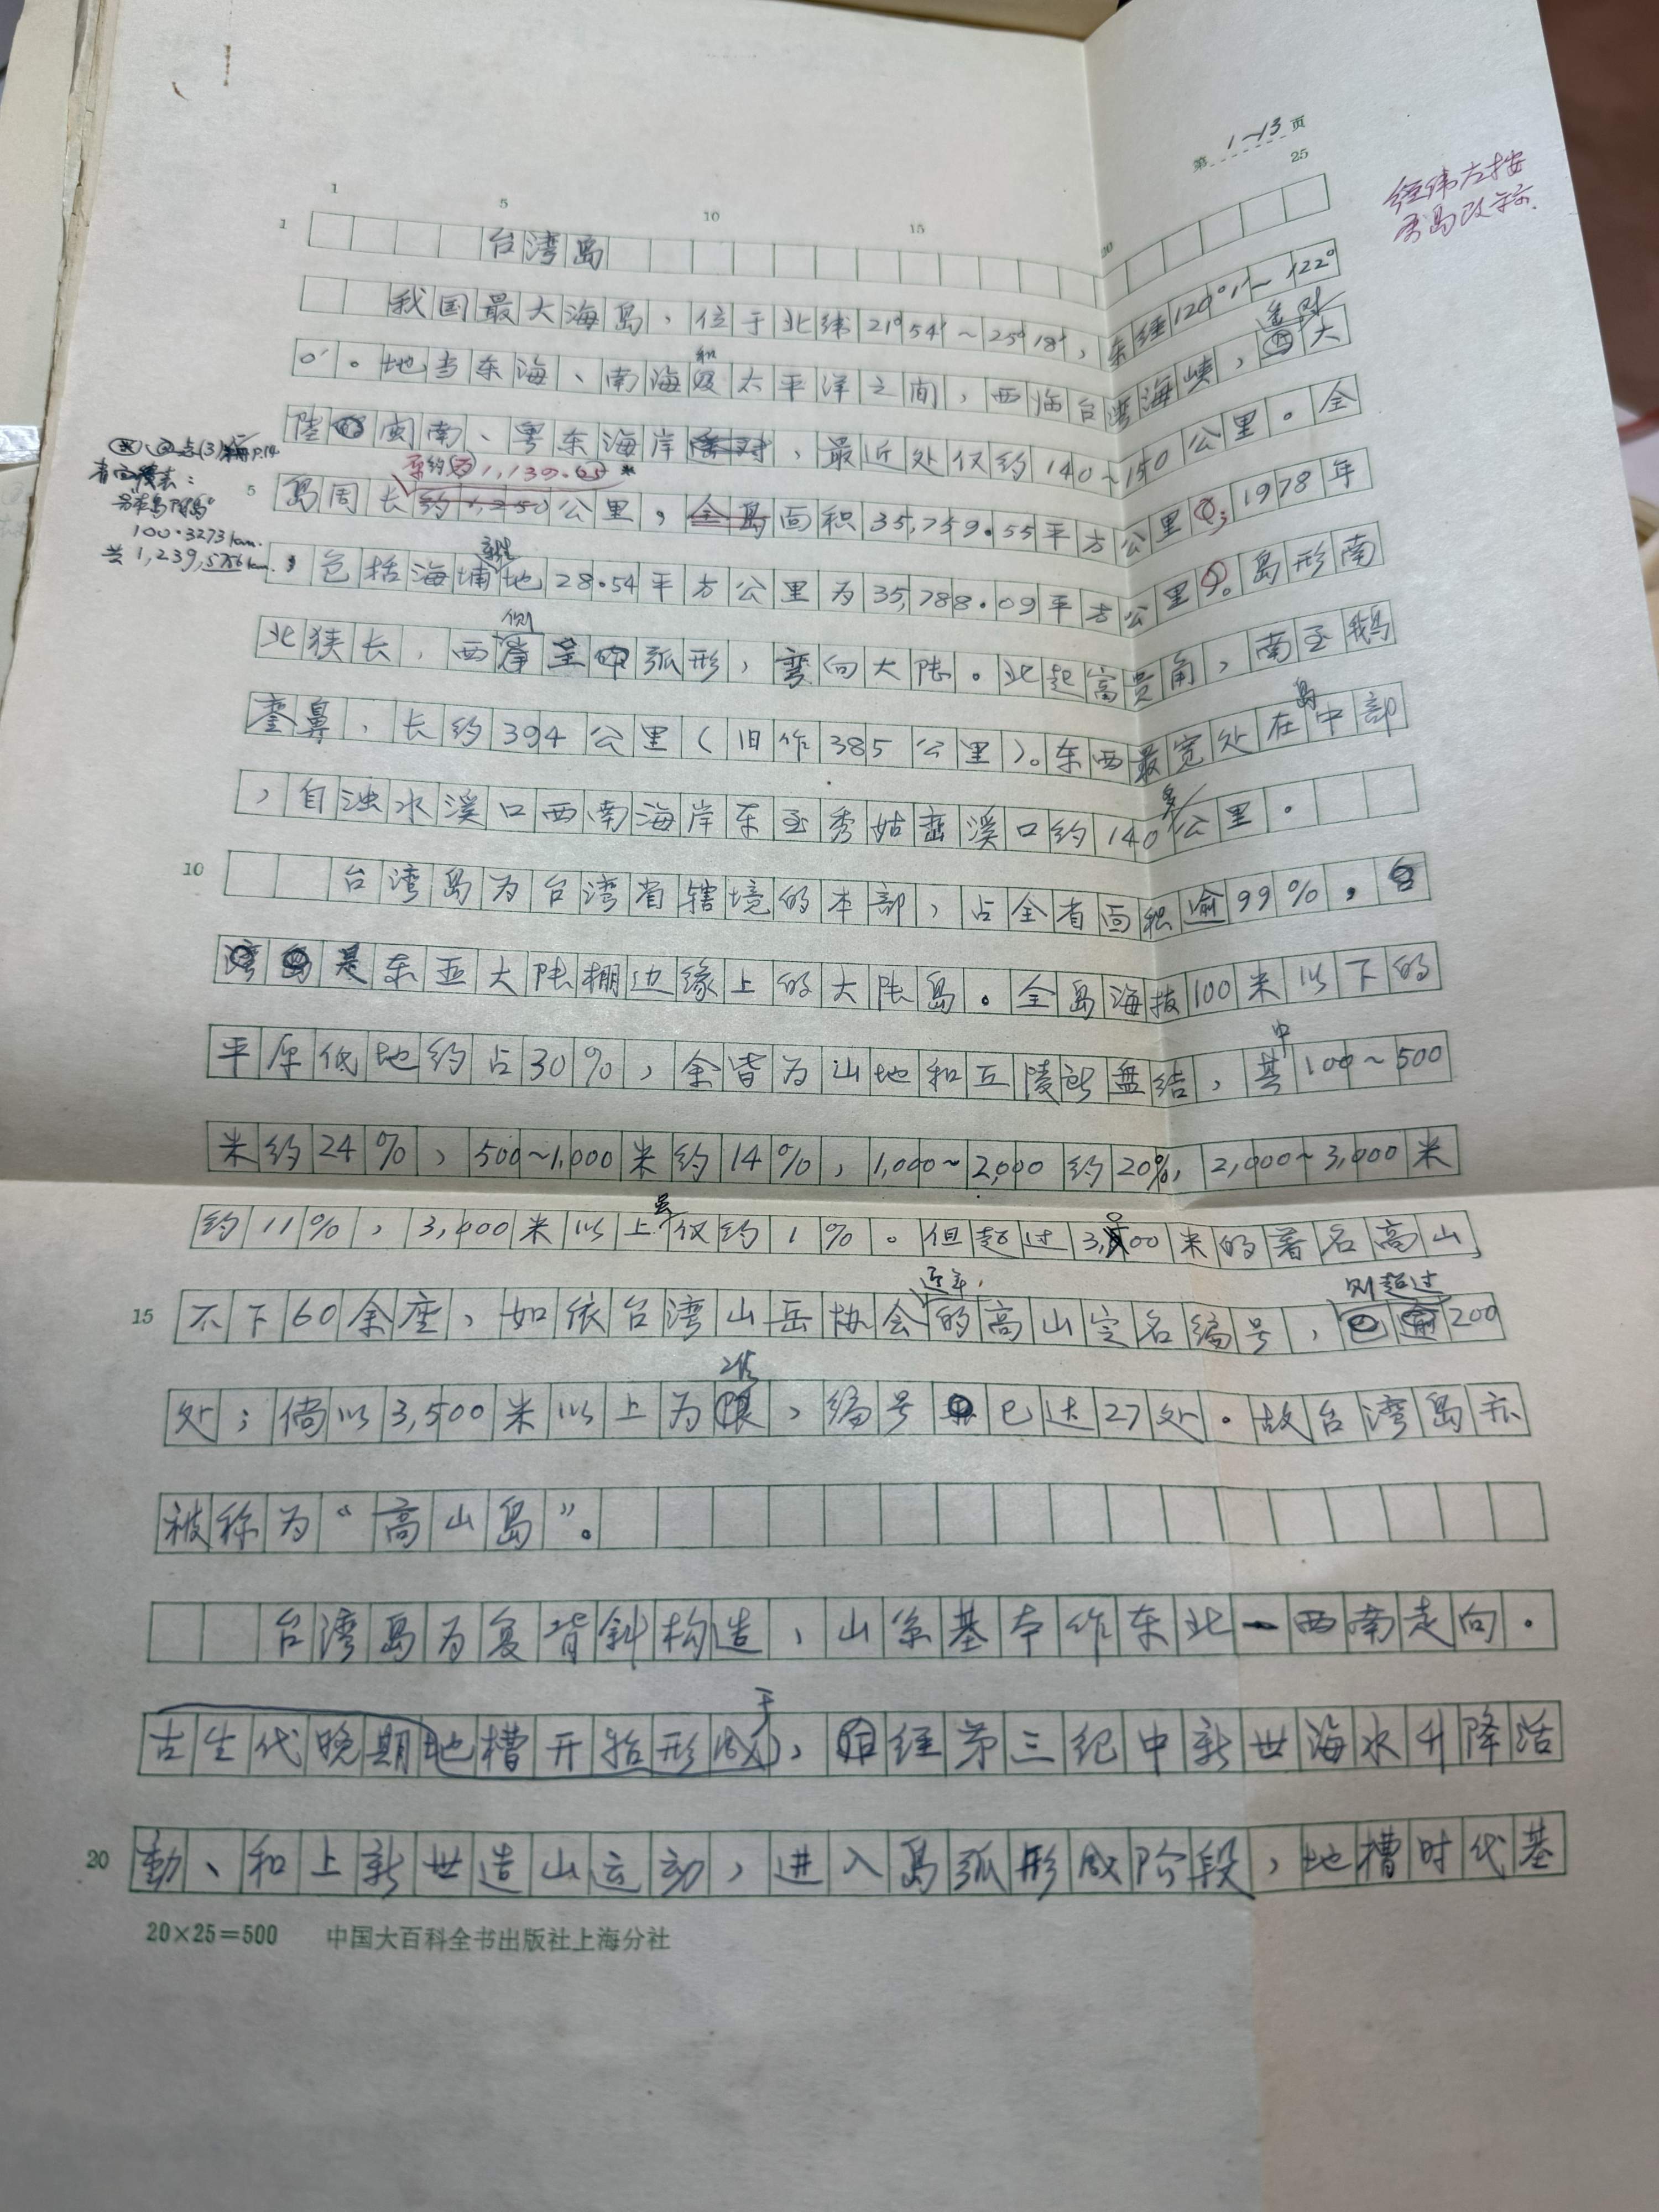 第 1~13 页
1 5 10 15 20 25
经纬左按
本岛改示.
1 台湾岛
我国最大海岛，位于北纬21°54′~25°18′，东经120°1′~122°
0′。地当东海、南海和太平洋之间，西临台湾海峡，遥对大
陆闽南、粤东海岸，最近处仅约140~150公里。全
原约为1,139.65*
5 岛周长约1,250公里，全岛面积35,759.55平方公里；1978年
，包括海埔新生地28.54平方公里为35,788.09平方公里。岛形南
北狭长，西侧呈弧形，弯向大陆。北起富贵角，南至鹅
銮鼻，长约394公里（旧作385公里）。东西最宽处在岛中部
，自浊水溪口西南海岸东至秀姑峦溪口约140多公里。
10 台湾岛为台湾省辖境的本部，占全省面积逾99%，
是东亚大陆棚边缘上的大陆岛。全岛海拔100米以下的
平原低地约占30%，余皆为山地和丘陵所盘结，其中100~500
米约24%，500~1,000米约14%，1,000~2,000约20%，2,000~3,000米
约11%，3,000米以上虽仅约1%。但超过3,000米的著名高山
15 不下60余座，如依台湾山岳协会近年的高山定名编号，则超过200
处；倘以3,500米以上为准，编号已达27处。故台湾岛亦
被称为“高山岛”。
台湾岛为复背斜构造，山系基本作东北—西南走向。
古生代晚期地槽开始形成于，经第三纪中新世海水升降活
20 動、和上新世造山运动，进入岛弧形成阶段，地槽时代基
100.3273km.
共1,239.5756km.
20×25=500 中国大百科全书出版社上海分社